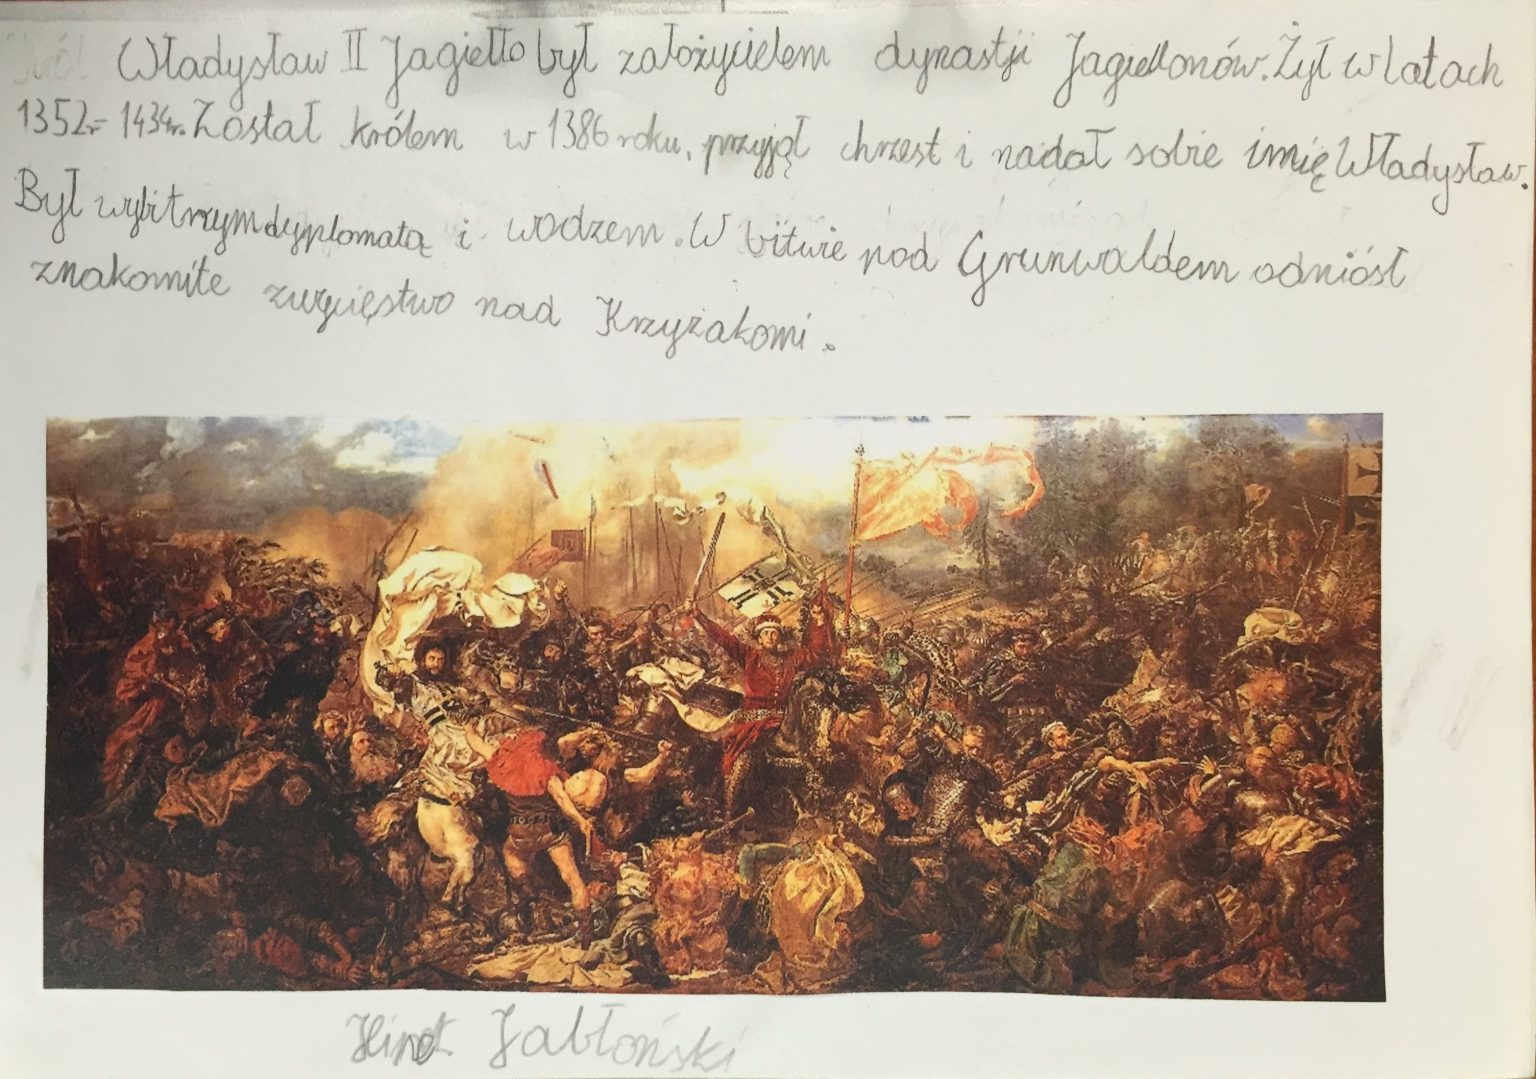 Władysław II Jagiełło był założycielem dynastji Jagiellonów. Żył w latach
1352r- 1434r. Został królem w 1386 roku, przyjął chrzest i nadał sobie imię Władysław.
Był wybitnym dyplomatą i wodzem. W bitwie pod Grunwaldem odniósł
znakomite zwycięstwo nad Krzyżakomi.
Jabłoński